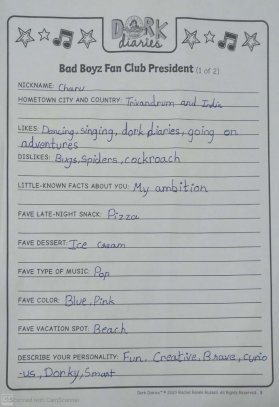 DORK
diaries
Bad Boyz Fan Club President (1 of 2)
NICKNAME: Charu
HOMETOWN CITY AND COUNTRY: Trivandrum and India
LIKES: Dancing, singing, dork diaries, going on
adventures
DISLIKES: Bugs, Spiders, cockroach
LITTLE-KNOWN FACTS ABOUT YOU: My ambition
FAVE LATE-NIGHT SNACK: Pizza
FAVE DESSERT: Ice cream
FAVE TYPE OF MUSIC: Pop
FAVE COLOR: Blue, Pink
FAVE VACATION SPOT: Beach
DESCRIBE YOUR PERSONALITY: Fun, Creative, Brave, curio
-us, Donky, Smart
Scanned with CamScanner